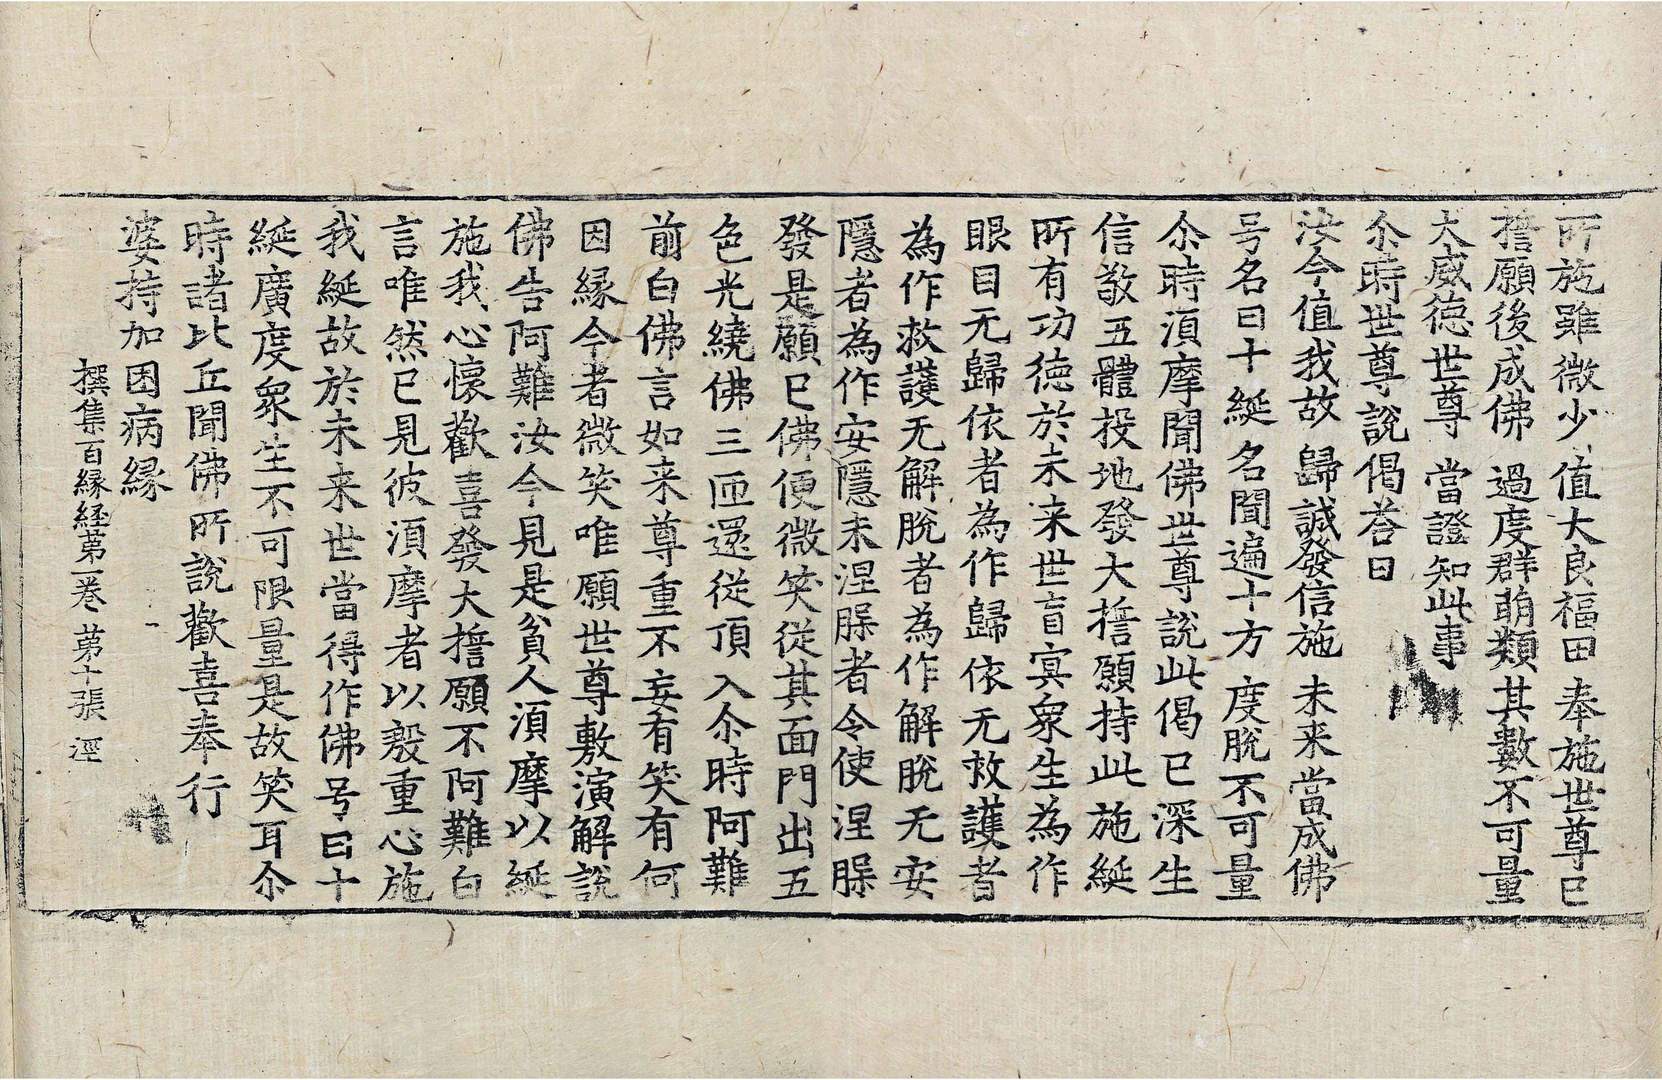 所施雖微少 值大良福田 奉施世尊已
擔願後成佛 過度群萌類 其數不可量
大威徳世尊 當證知此事
尒時世尊說偈荅曰
汝今值我故 歸誠發信施 未来當成佛
号名曰十綖 名聞遍十方 度脫不可量
尒時湏摩聞佛世尊說此偈已深生
信敬五體投地發大擔願持此施綖
所有功徳於未来世盲冥衆生為作
眼目无歸依者為作歸依无救護者
為作救護无解脫者為作解脫无安
隱者為作安隱未涅槃者令使涅槃
發是願已佛便微笑從其面門出五
色光繞佛三匝還從頂入尒時阿難
前白佛言如来尊重不妄有笑有何
因縁今者微笑唯願世尊敷演解說
佛告阿難汝今見是貧人湏摩以綖
施我心懷歡喜發大擔願不阿難白
言唯然已見彼湏摩者以慇重心施
我綖故於未来世當得作佛号曰十
綖廣度衆生不可限量是故笑耳尒
時諸比丘聞佛所說歡喜奉行
婆持加困病縁
撰集百縁経苐一卷 苐十張 逕